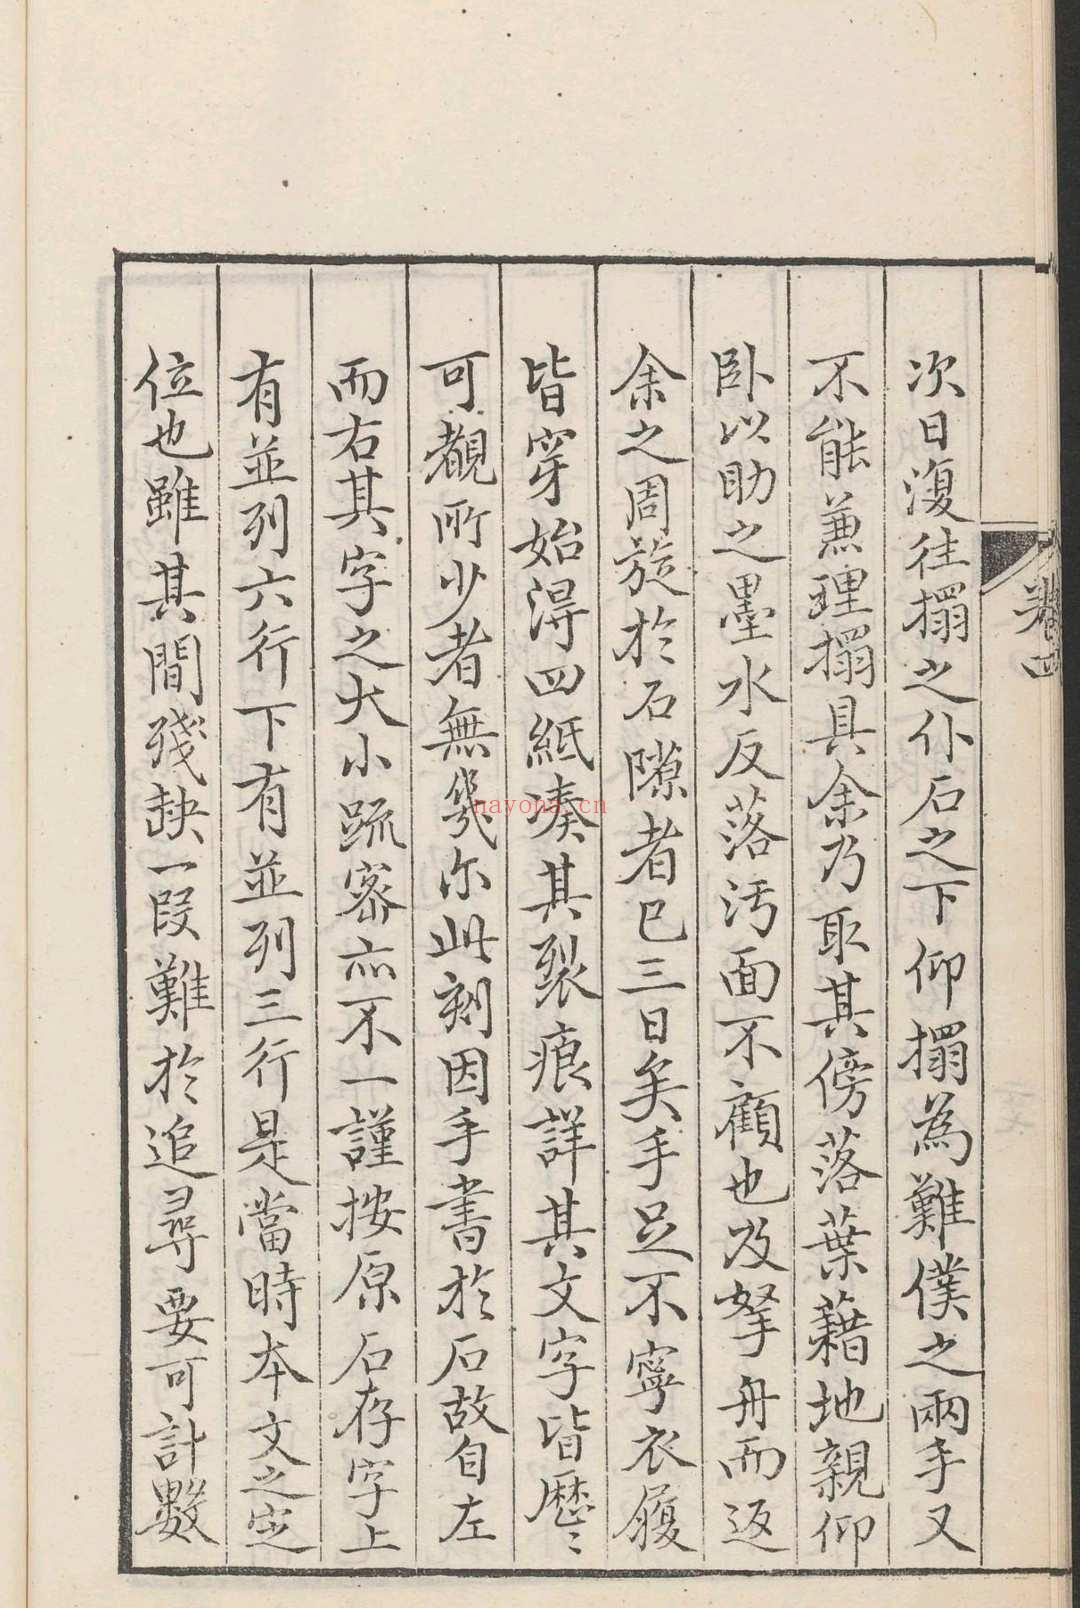 卷四
次日復往搨之仆石之下仰搨為難僕之兩手又
不能兼理搨具余乃取其傍落葉藉地親仰
臥以助之墨水反落污面不顧也及拏舟而返
余之周旋於石隙者已三日矣手足不寧衣履
皆穿始得四紙凑其裂痕詳其文字皆歷〻
可覩所少者無幾尔此刻因手書於石故自左
而右其字之大小疏密亦不一謹按原石存字上
有並列六行下有並列三行是當時本文之定
位也雖其間殘缺一段難於追尋要可計數
nayona.cn